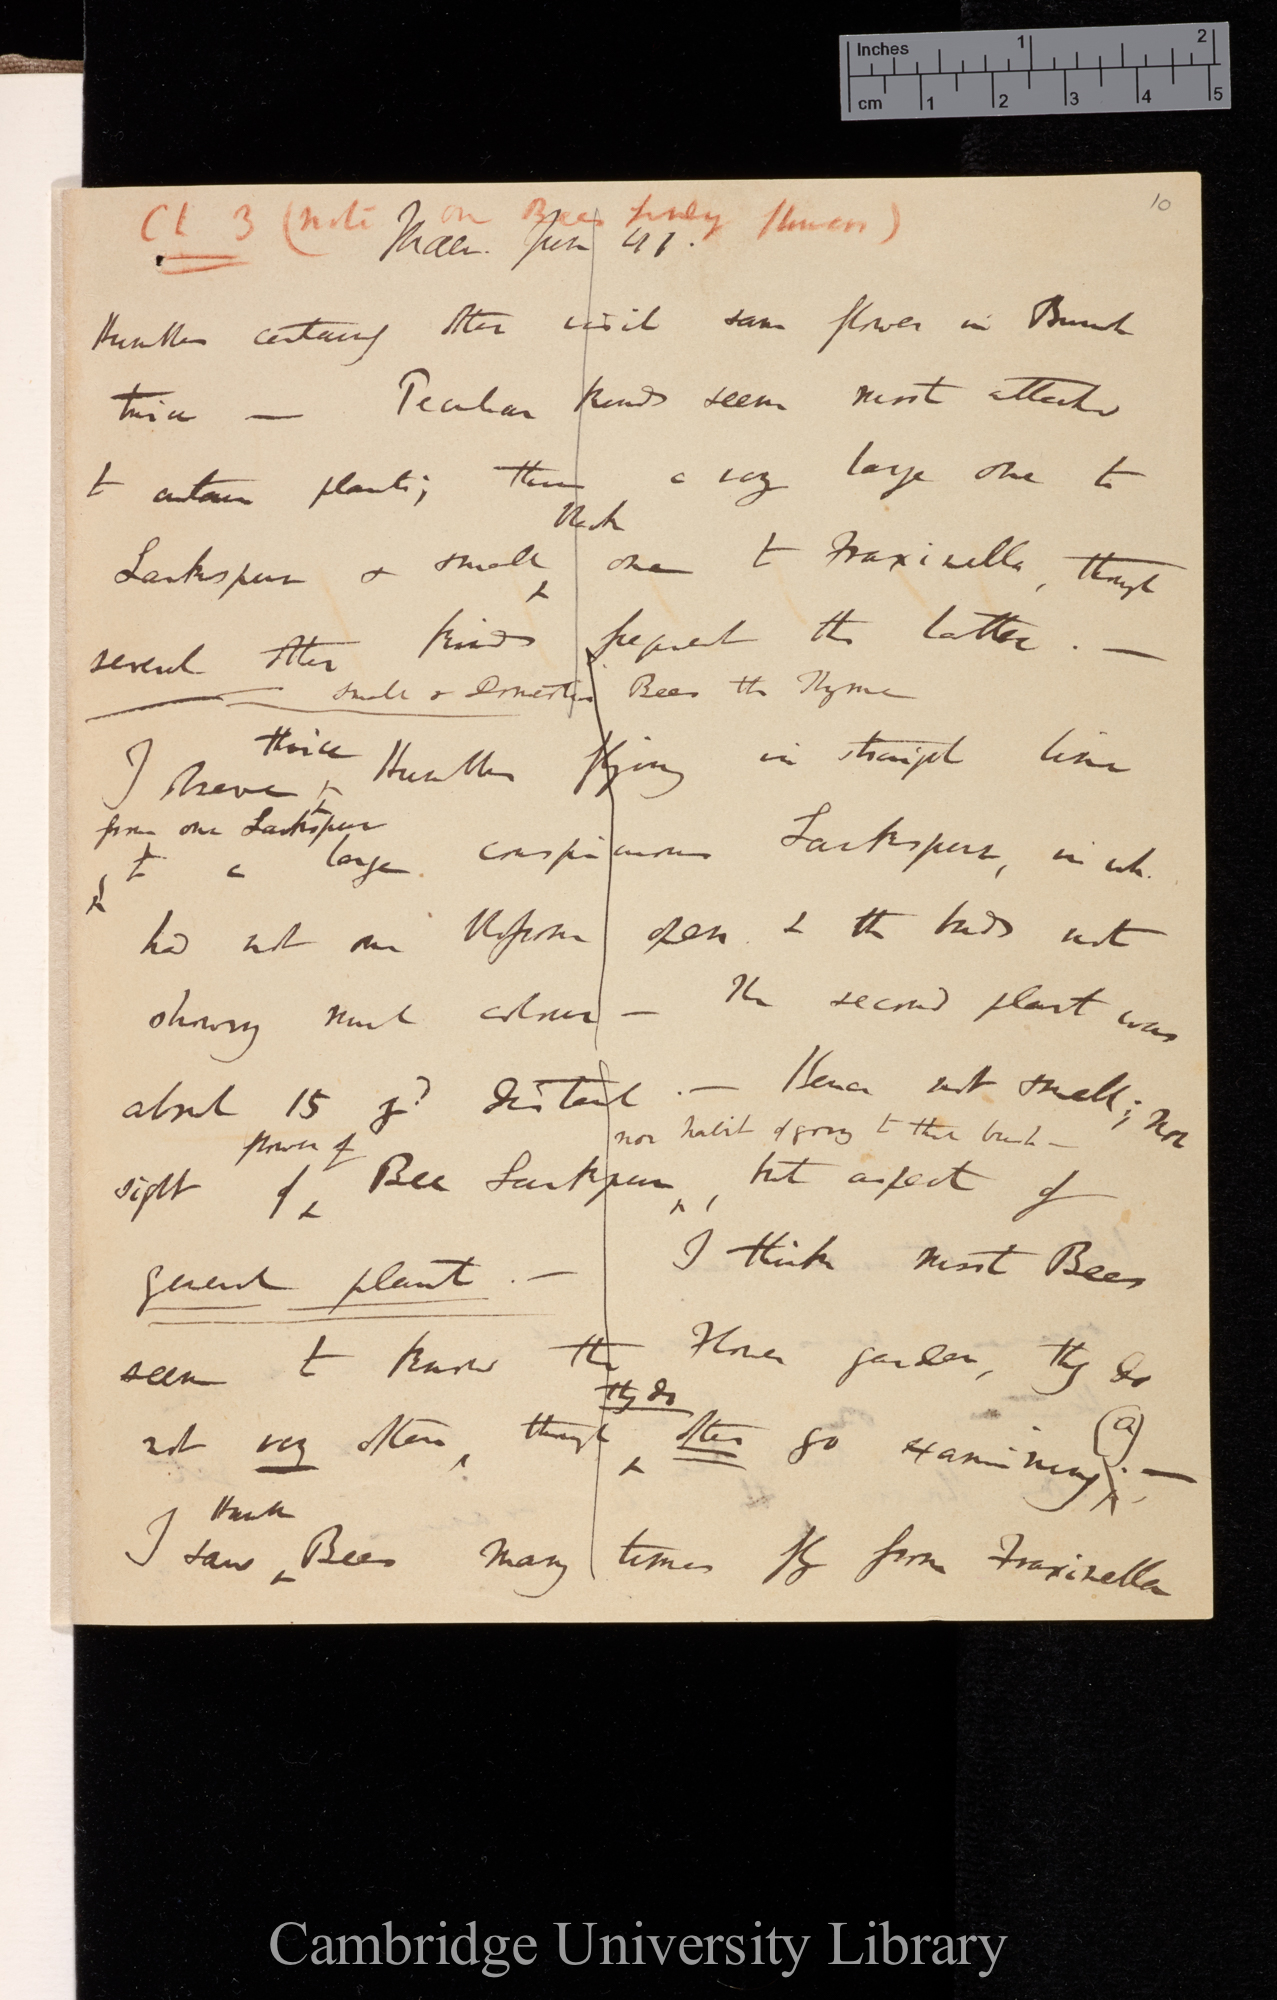 Inches 1 2
cm 1 2 3 4 5
10
Ch 3 (note on Bees finding flowers)
Maer. June 41.
Humbles certainly often visit same flower in Bunch
twice — Peculiar kinds seem most attached
to certain plants; thus a very large one to
black
Larkspur & small one to Fraxinella, though
several other kinds frequent the latter. —
small & Domestic Bees the Thyme
thrice
I observe Humbles flying in straight line
from one Larkspur
to a large conspicuous Larkspur, in wh.
had not one blossom open & the buds not
showing much colour — The second plant was
about 15 yds distant. — Hence not smell; nor
power of
nor habit of going to this bush —
sight of Bee Larkspur, but aspect of
general plant. — I think most Bees
seem to know the Flower garden, they do
they do (a)
not very often, though often go examining; —
Humble
I saw Bees many times fly from Fraxinella
Cambridge University Library